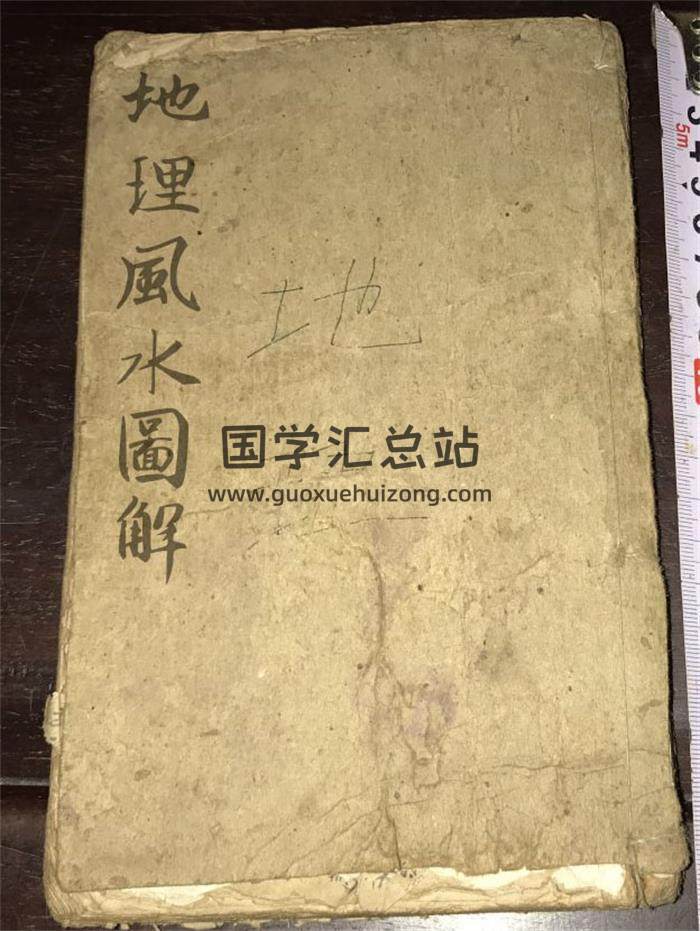 地理風水圖解
地
国学汇总站
www.guoxuehuizong.com
5m
3
4
5
6
7